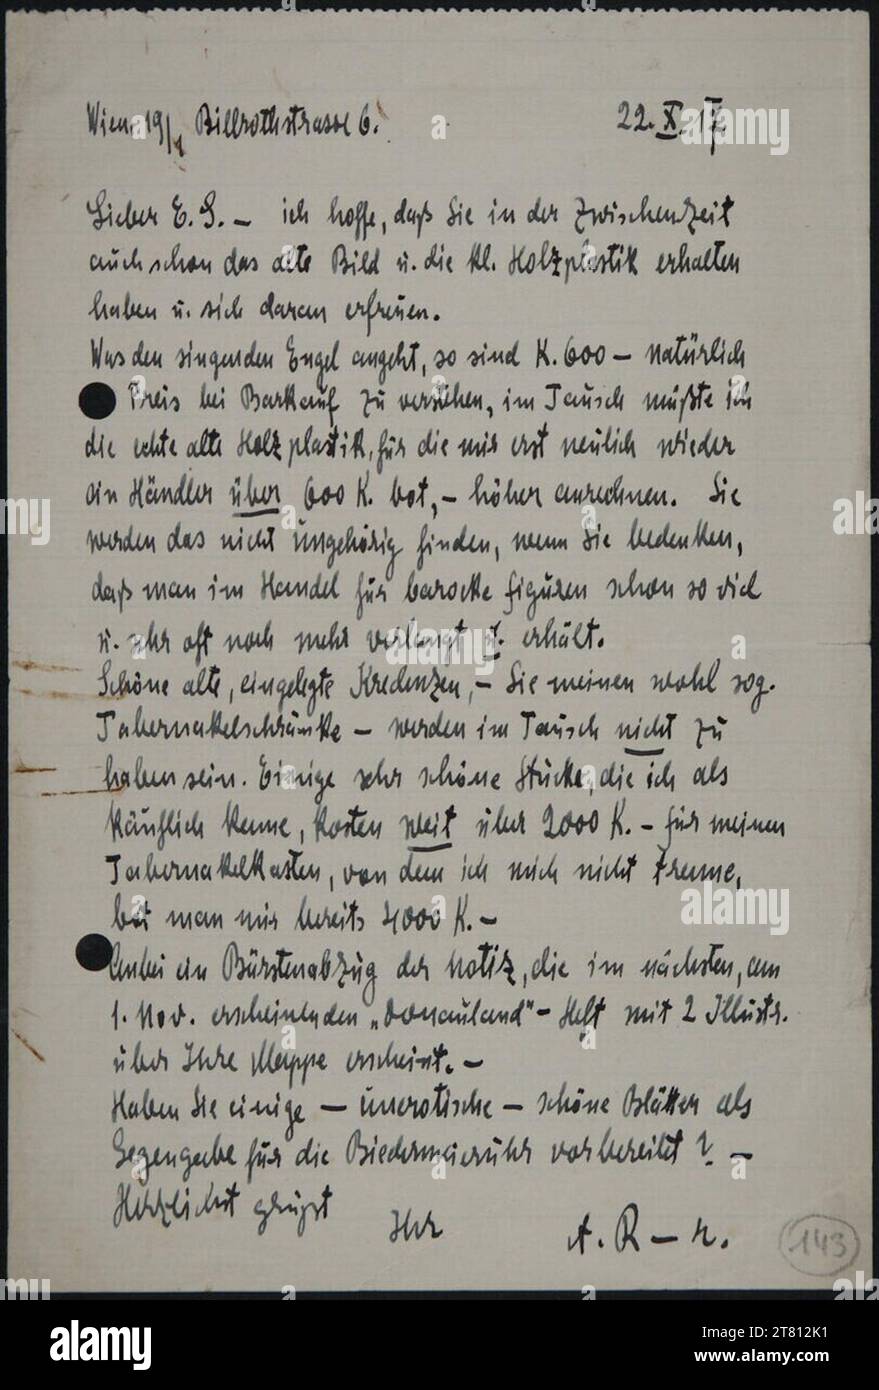 Wien 19/1 Billrothstrasse 6. 22. X. 17
Lieber E. S. – ich hoffe, daß Sie in der Zwischenzeit
auch schon das alte Bild u. die kl. Holzplastik erhalten
haben u. sich daran erfreuen.
Was den singenden Engel angeht, so sind K. 600 – natürlich
Preis bei Barkauf zu verstehen, im Tausch müßte ich
die echte alte Holzplastik, für die mir erst neulich wieder
ein Händler über 600 K. bot, – höher anrechnen. Sie
werden das nicht ungehörig finden, wenn Sie bedenken,
daß man im Handel für barocke Figuren schon so viel
u. sehr oft noch mehr verlangt u. erhält.
Schöne alte, eingelegte Kredenzen, – Sie meinen wohl sog.
Tabernakelschränke – werden im Tausch nicht zu
haben sein. Einige sehr schöne Stücke, die ich als
käuflich kenne, kosten weit über 2000 K. – für meinen
Tabernakelkasten, von dem ich mich nicht trenne,
bot man mir bereits 4000 K. –
Anbei ein Bürstenabzug der Notiz, die im nächsten, am
1. Nov. erscheinenden „Donauland" – Heft mit 2 Illustr.
über Ihre Mappe erscheint. –
Haben Sie einige – unerotische – schöne Blätter als
Gegengabe für die Biedermeieruhr vorbereitet? –
Herzlichst grüßt
Ihr A. R – r.
143
alamy
Image ID: 2T812K1
www.alamy.com